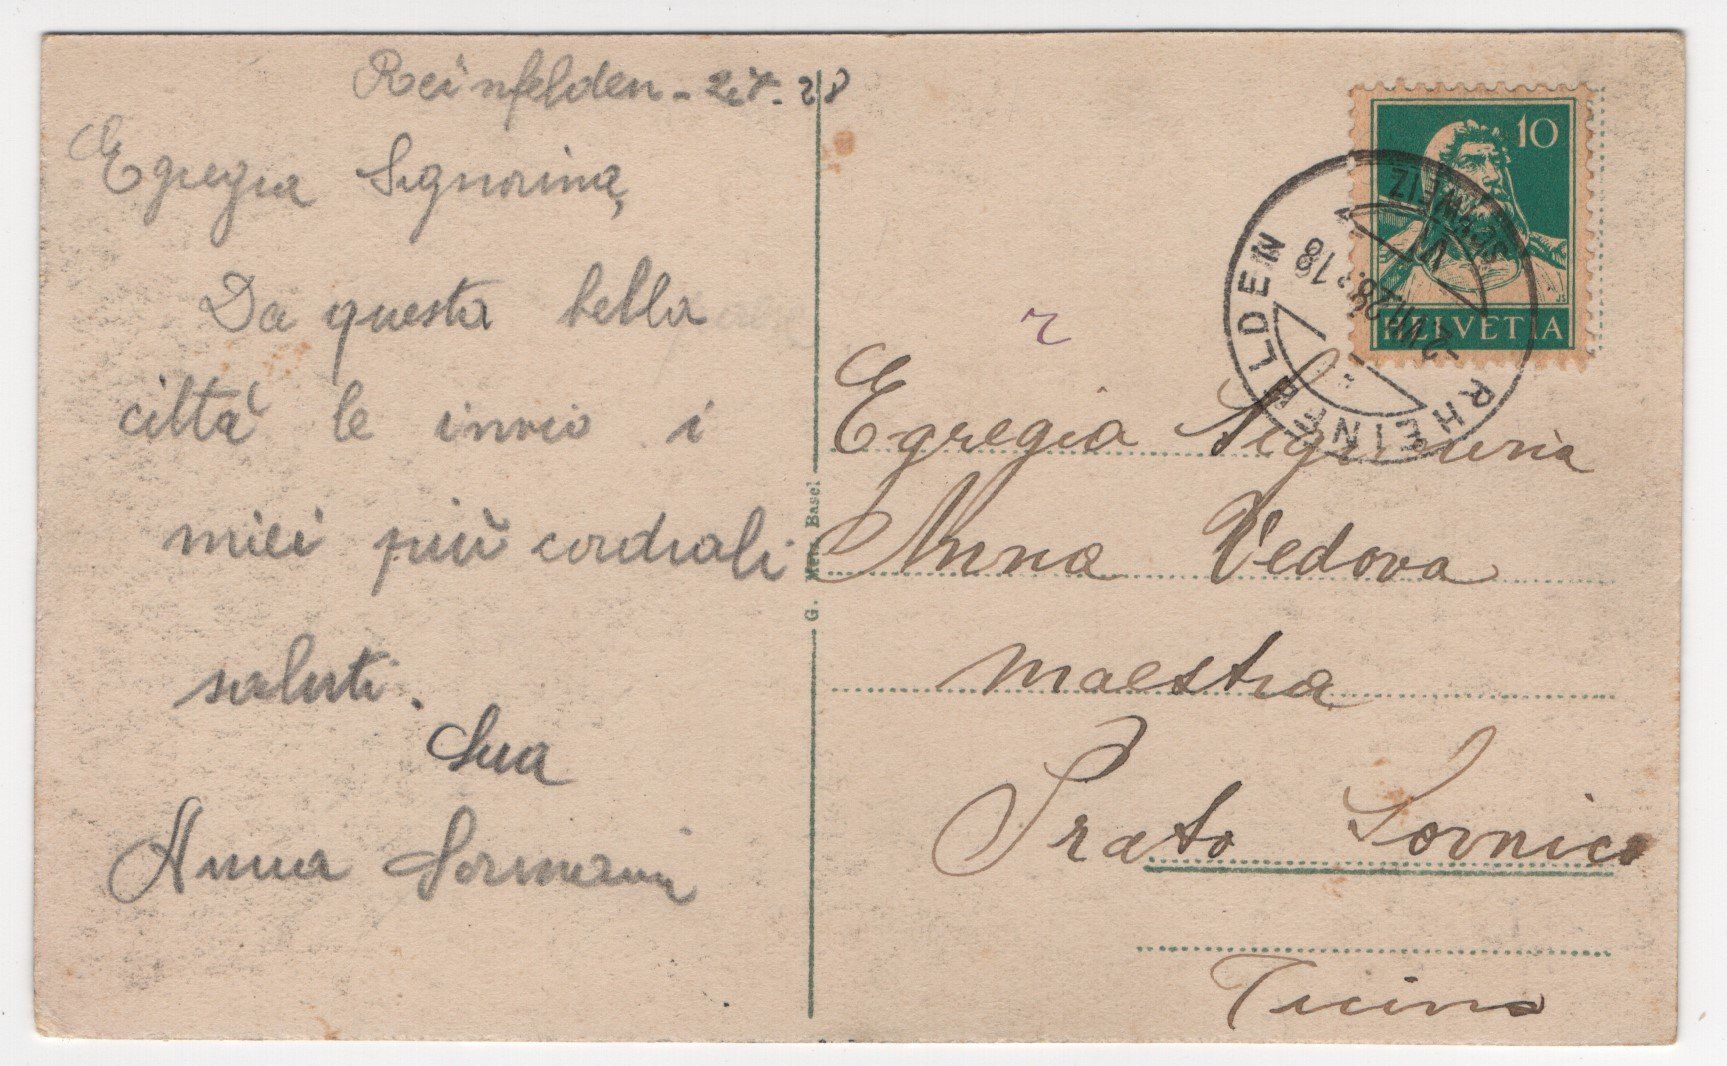 Reinfelden - 2.7. 28
Egregia Signorina,
Da questa bella
città le invio i
miei più cordiali
saluti.
Sua
Anna Sormani
G. Metz, Basel
10
HELVETIA
RHEINFELDEN
-2.VII.28.-18
SCHWEIZ
Egregia Signorina
Anna Vedova
maestra
Prato Sornico
Ticino